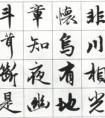 非川相光
懷鳥有地
章知夜幽
斗茸斷是